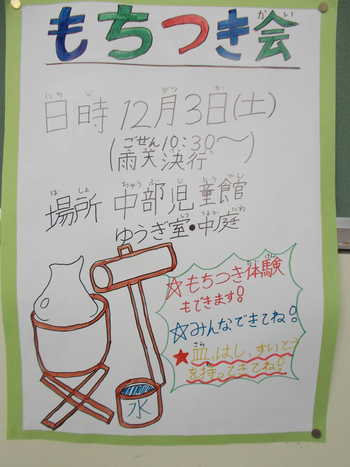 もちつき会
日時 12月3日(土)
(ごぜん10:30〜
雨天決行)
場所 中部児童館
ゆうぎ室・中庭
☆もちつき体験
もできます!
☆みんなできてね!
★皿、はし、すいとう
を持ってきてね!!
水